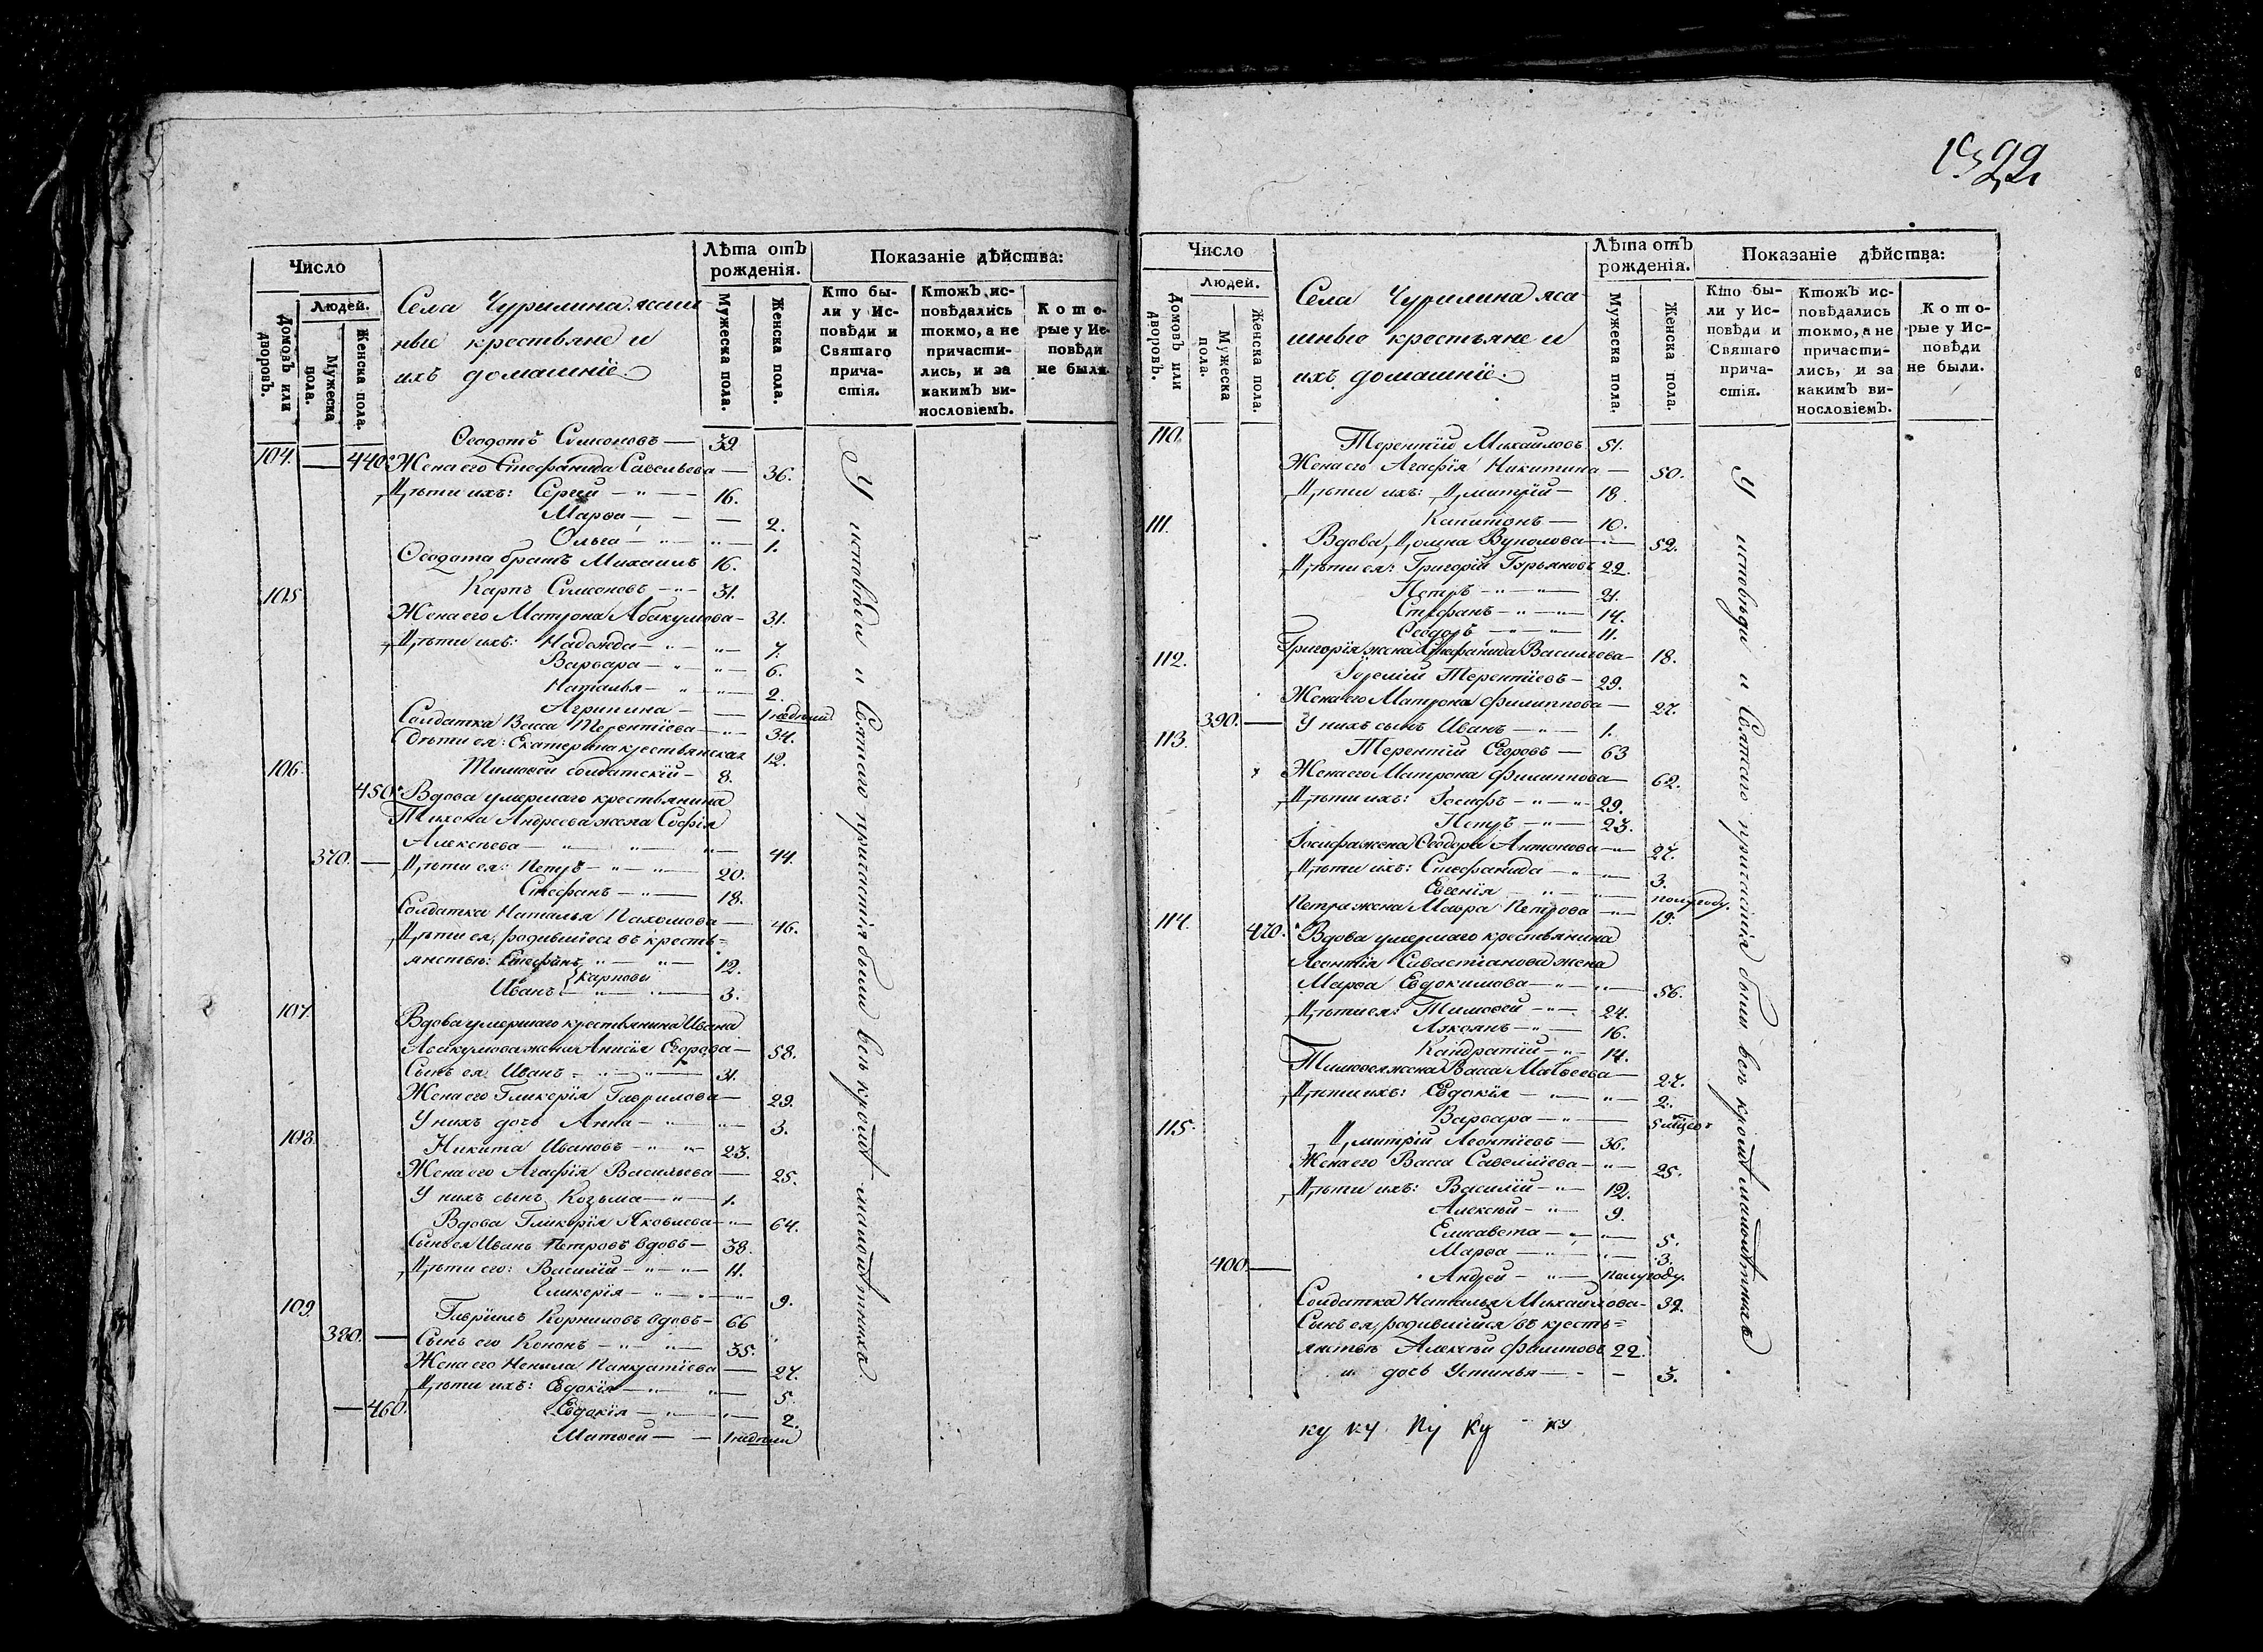 Число
Людей.
Домовъ или дворовъ.
Мужеска пола.
Женска пола.
Села Чурилина ясаш
ные крестьяне и
ихъ домашніе.
Лѣта отъ рожденія.
Мужеска пола.
Женска пола.
Показаніе дѣйства:
Кто были у Исповѣди и Святаго причастія.
Ктожъ исповѣдались токмо, а не причастились, и за какимъ винословіемъ.
Которые у Исповѣди не были.
Ѳеодотъ Симеоновъ — 39.
104. — 440. Жена его Стефанида Савельева — 36.
Дѣти ихъ: Сергій — 16.
Марѳа — 2.
Ольга — 1.
Ѳеодота братъ Михаилъ 16.
105. Карпъ Симеоновъ — 31.
Жена его Матрона Абакумова — 31.
Дѣти ихъ: Надежда — 7.
Варвара — 6.
Наталья — 2.
Агрипина — 1 недѣли
Солдатка Васса Терентіева — 34.
Дѣти ея: Екатерина крестьянская 12.
106. Тимоѳей солдатскій — 8.
450. Вдова умершаго крестьянина
Тихона Андреева жена Софія
Алексѣева — 44.
370. — Дѣти ея: Петръ — 20.
Стефанъ — 18.
Солдатка Наталья Пахомова — 46.
Дѣти ея, родившіеся въ кресть=
янствѣ: Стефанъ — 12.
Карповы
Иванъ — 3.
107. Вдова умершаго крестьянина Ивана
Абакумова жена Анисія Егорова — 58.
Сынъ ея Иванъ — 31.
Жена его Гликерія Гаврилова — 29.
У нихъ дочь Анна — 3.
108. Никита Ивановъ — 23.
Жена его Агафія Васильева — 25.
У нихъ сынъ Козьма — 1.
Вдова Гликерія Яковлева — 64.
Сынъ ея Иванъ Петровъ вдовъ — 38.
Дѣти его: Василій — 11.
Гликерія — 9.
109. Гавріилъ Корниловъ вдовъ — 66
380. — Сынъ его Кононъ — 35.
Жена его Ненила Панкратіева — 27.
Дѣти ихъ: Евдокія — 5.
— 460. Евдокія — 2.
Матвей — 1 недѣли
У исповѣди и Святаго причастія были всѣ кромѣ малолѣтныхъ.
1399
Число
Людей.
Домовъ или дворовъ.
Мужеска пола.
Женска пола.
Села Чурилина яса-
шные крестьяне и
ихъ домашніе.
Лѣта отъ рожденія.
Мужеска пола.
Женска пола.
Показаніе дѣйства:
Кто были у Исповѣди и Святаго причастія.
Ктожъ исповѣдались токмо, а не причастились, и за какимъ винословіемъ.
Которые у Исповѣди не были.
110. Терентій Михайловъ 51.
Жена его Агафія Никитина — 50.
Дѣти ихъ: Дмитрій — 18.
Капитонъ — 10.
111. Вдова Домна Вуколова — 52.
Дѣти ея: Григорій Гурьяновъ 22.
Петръ — 21.
Стефанъ — 14.
Ѳеодоръ — 11.
Григорія жена Стефанида Васильева — 18.
112. Іеремій Терентіевъ — 29.
Жена его Матрона Филиппова — 27.
390. — У нихъ сынъ Иванъ — 1.
113. Терентій Егоровъ — 63
Жена его Матрона Филиппова — 62.
Дѣти ихъ: Іосифъ — 29.
Петръ — 23.
Іосифа жена Ѳеодора Антонова — 27.
Дѣти ихъ: Стефанида — 3.
Евгенія — полугоду.
Петра жена Мавра Петрова — 19.
114. 470. Вдова умершаго крестьянина
Леонтія Савастіанова жена
Марѳа Евдокимова — 56.
Дѣти ея: Тимоѳей — 24.
Лукоянъ — 16.
Кандратій — 14.
Тимоѳея жена Васса Матвеева — 27.
Дѣти ихъ: Евдокія — 2.
Варвара — 5 мѣсяц.
115. Дмитрій Леонтіевъ — 36.
Жена его Васса Савеліева — 25.
Дѣти ихъ: Василій — 12.
Алексѣй — 9.
Елисавета — 5.
Марѳа — 3.
400. — Андрей — полугоду.
Солдатка Наталья Михайлова — 39.
Сынъ ея, родившійся въ кресть=
янствѣ Алексѣй Филиповъ 22.
и дочь Устинья — 3.
У исповѣди и Святаго причастія были всѣ кромѣ малолѣтныхъ
ку ку ку ку ку